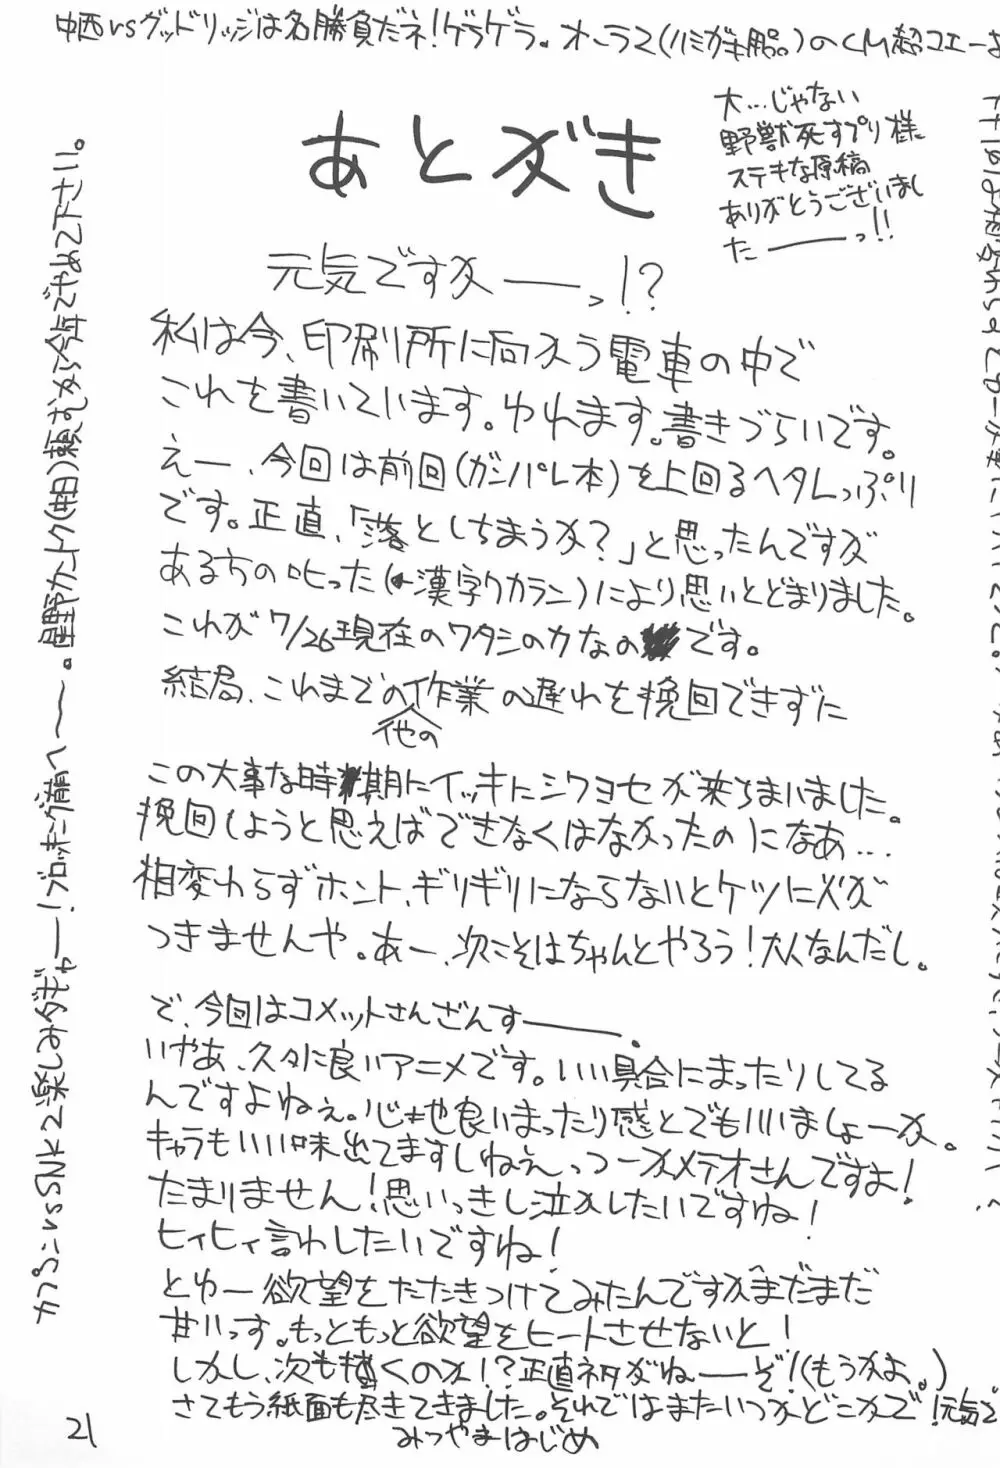 中西vsグッドリッジは名勝負だネ！ゲラゲラ。オーラ2(ハミガキ用品。)のCM超コエーよ
あとがき
大…じゃない
野獣死すプリ様
ステキな原稿
ありがとうございまし
たーーっ!!
元気ですかーーっ!?
私は今、印刷所に向かう電車の中で
これを書いています。ゆれます。書きづらいです。
えー、今回は前回(ガンパレ本)を上回るヘタレっぷり
です。正直、「落としちまうか？」と思ったんですが
ある方の叱った(←漢字ワカラン)により思いとどまりました。
これが7/26現在のワタシの力なのです。
結局、これまでの他の作業の遅れを挽回できずに
この大事な時期にイッキにシワヨセが来ちまいました。
挽回しようと思えばできなくはなかったのになあ…
相変わらずホント、ギリギリにならないとケツに火が
つきませんや。あー、次こそはちゃんとやろう！大人なんだし。
で、今回はコメットさんざんすーーー。
いやあ、久々に良いアニメです。いい具合にまったりしてる
んですよねぇ。心地良いまったり感とでもいいましょーか。
キャラもいい味出てますしねぇっつーかメテオさんですよ！
たまりません！思いっきし泣かしたいですね！
ヒィヒィ言わしたいですね！
とゆー欲望をたたきつけてみたんですがまだまだ
甘いっす。もっともっと欲望をヒートさせないと！
しかし、次も描くのか！？正直ネタがねーーぞ！(もうかよ。)
さてもう紙面も尽きてきました。それではまたいつかどこかで！元気で
みつやまはじめ
カプコンvsSNK2楽しみダギャー！ブロッキング萌へーー。星野カントク(旧)頼むから今年でやめて下さい。
21